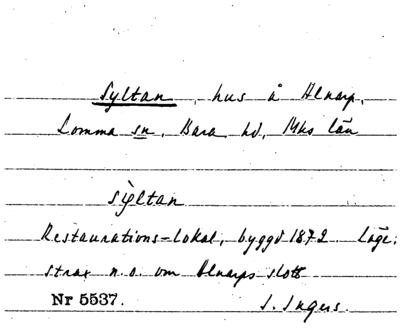 Syltan, hus å Alnarp,
Lomma sn, Bara hd, Mhs län
sỳltan
Restaurations-lokal, byggd 1872 Läge:
strax n.o. om Alnarps slott
Nr 5537. I. Ingers.